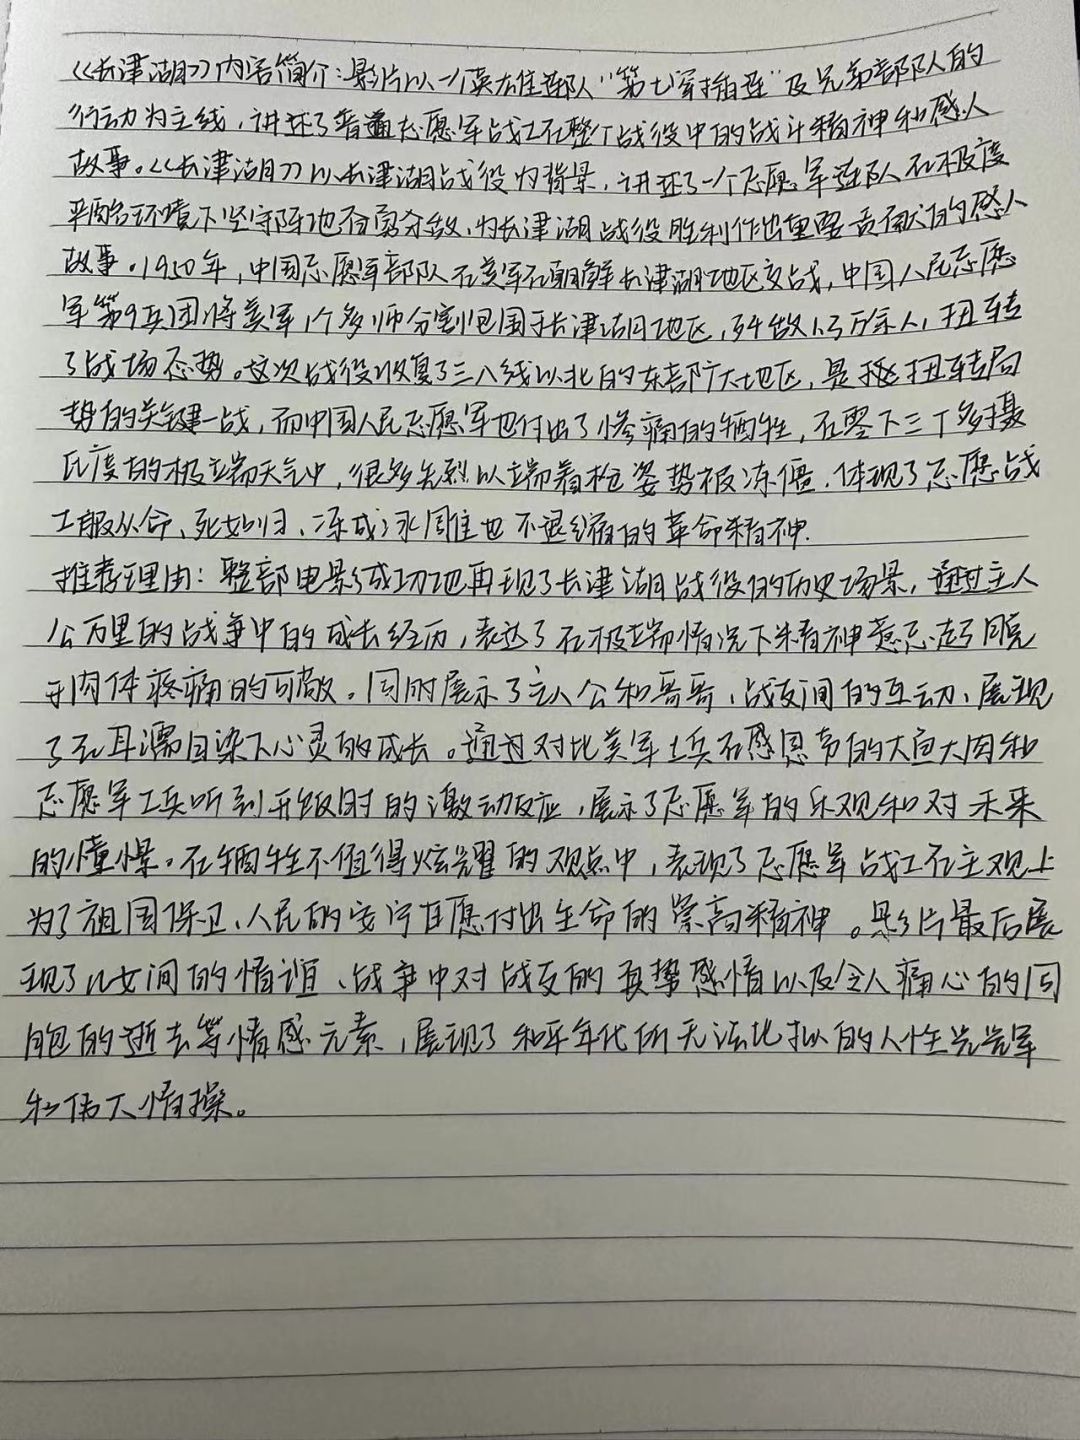 《长津湖》内容简介：影片以一个英雄连队“第七穿插连”及兄弟部队的
行动为主线，讲述了普通志愿军战士在整个战役中的战斗精神和感人
故事。《长津湖》以长津湖战役为背景，讲述了一个志愿军连队在极度
严酷环境下坚守阵地奋勇杀敌，为长津湖战役胜利作出重要贡献的感人
故事。1950年，中国志愿军部队在美军在朝鲜长津湖地区交战，中国人民志愿
军第9兵团将美军1个多师分割包围于长津湖地区，歼敌1.3万余人，扭转
了战场态势。这次战役收复了三八线以北的东部广大地区，是扭转局
势的关键一战，而中国人民志愿军也付出了惨痛的牺牲，在零下三十多摄
氏度的极端天气中，很多先烈以端着枪姿势被冻僵，体现了志愿战
士服从命、死如归、冻成冰雕也不退缩的革命精神.
推荐理由：整部电影成功地再现了长津湖战役的历史场景，通过主人
公万里的战争中的成长经历，表达了在极端情况下精神意志超脱
于肉体疼痛的可敬。同时展示了主人公和哥哥、战友间的互动、展现
了在耳濡目染下心灵的成长。通过对比美军士兵在感恩节的大鱼大肉和
志愿军士兵听到开饭时的激动反应，展示了志愿军的乐观和对未来
的憧憬。在牺牲不值得炫耀的观点中，表现了志愿军战士在主观上
为了祖国保卫、人民的安宁自愿付出生命的崇高精神。影片最后展
现了儿女间的情谊、战争中对战友的真挚感情以及令人痛心的同
胞的逝去等情感元素，展现了和平年代所无法比拟的人性光辉
和伟大情操。